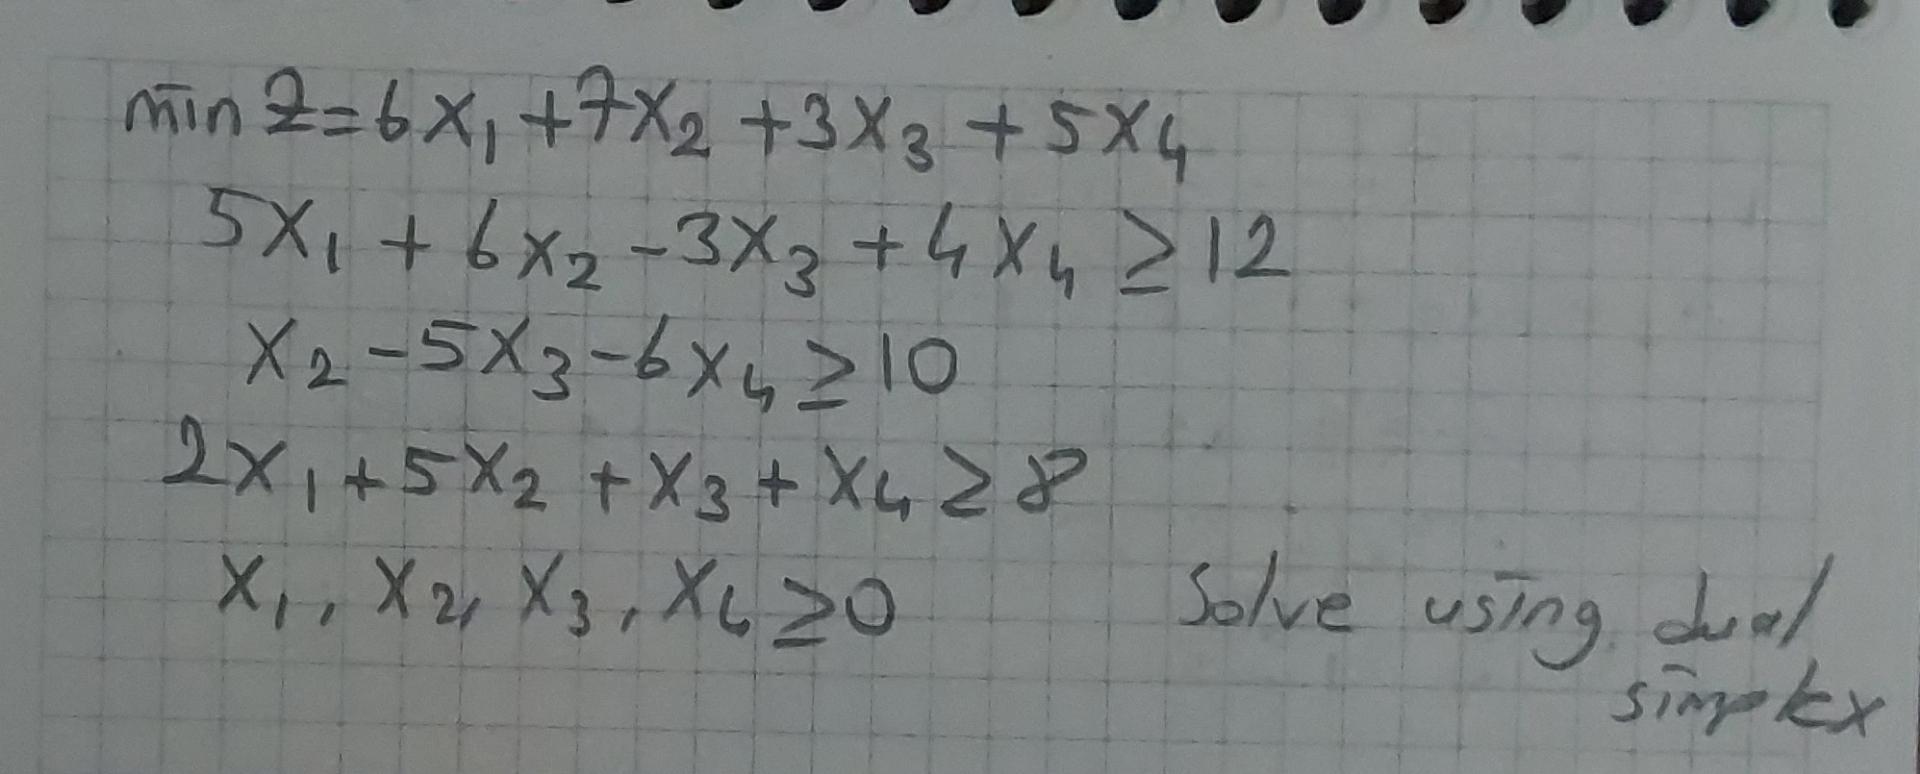 min Z=6X₁+7X₂+3X₃+5X₄
5X₁+6X₂-3X₃+4X₄≥12
X₂-5X₃-6X₄≥10
2X₁+5X₂+X₃+X₄≥8
X₁, X₂, X₃, X₄≥0
Solve using dual
simplex